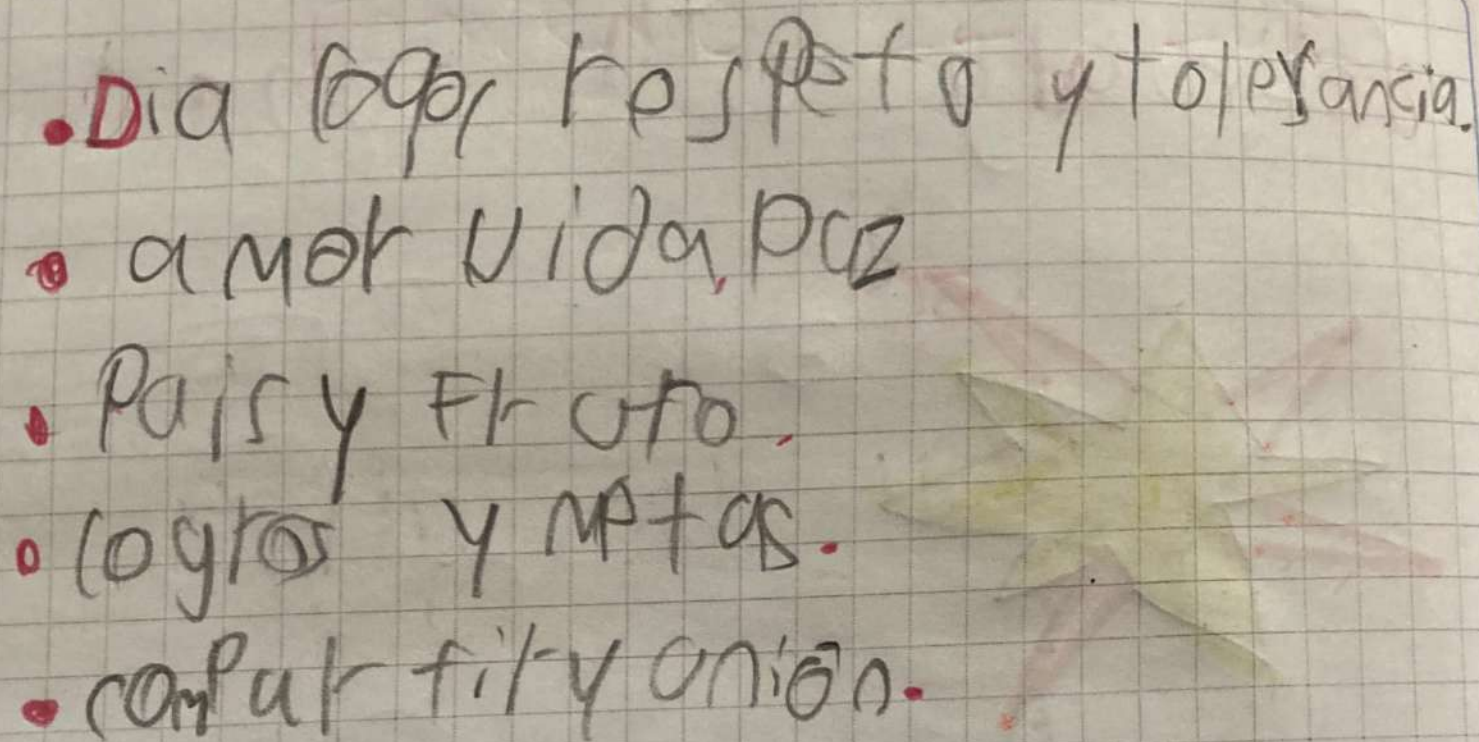 • Dia logor respeto y tolerancia.
• amor vida, paz
• Pais y Fruto.
• logros y metas.
• compartir y unión.